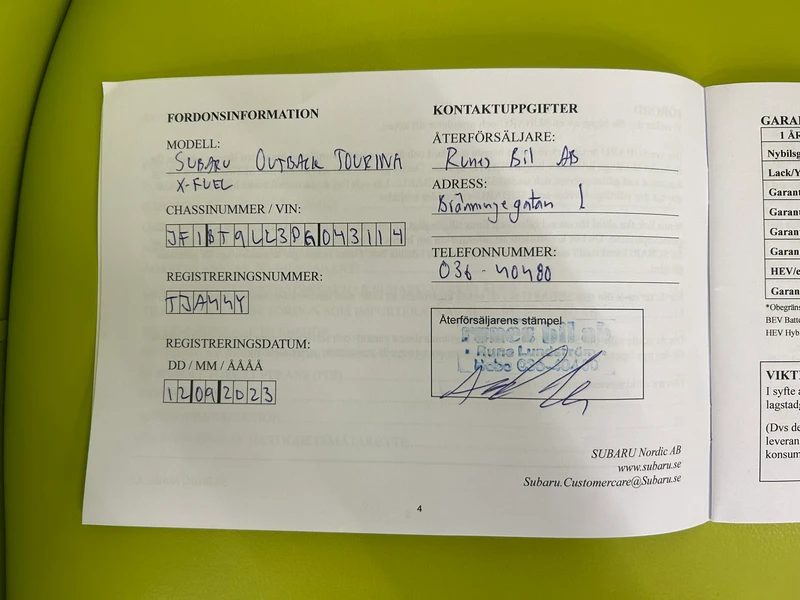 FORDONSINFORMATION
MODELL:
SUBARU OUTBACK TOURING
X-FUEL
CHASSINUMMER / VIN:
JF1BT9LL3PG043114
REGISTRERINGSNUMMER:
TJA44Y
REGISTRERINGSDATUM:
DD / MM / ÅÅÅÅ
12092023
KONTAKTUPPGIFTER
ÅTERFÖRSÄLJARE:
Runes Bil AB
ADRESS:
1
TELEFONNUMMER:
036-40480
Återförsäljarens stämpel
runes bil ab
Rune Lundström
SUBARU Nordic AB
www.subaru.se
Subaru.Customercare@Subaru.se
4
GARA
1 ÅR
Nybilsg
Lack/Y
Garant
Garant
Garant
Garant
HEV/e
Garan
*Obegräns
BEV Batte
HEV Hyb
VIKT
I syfte a
lagstadg
(Dvs de
leveran
konsum